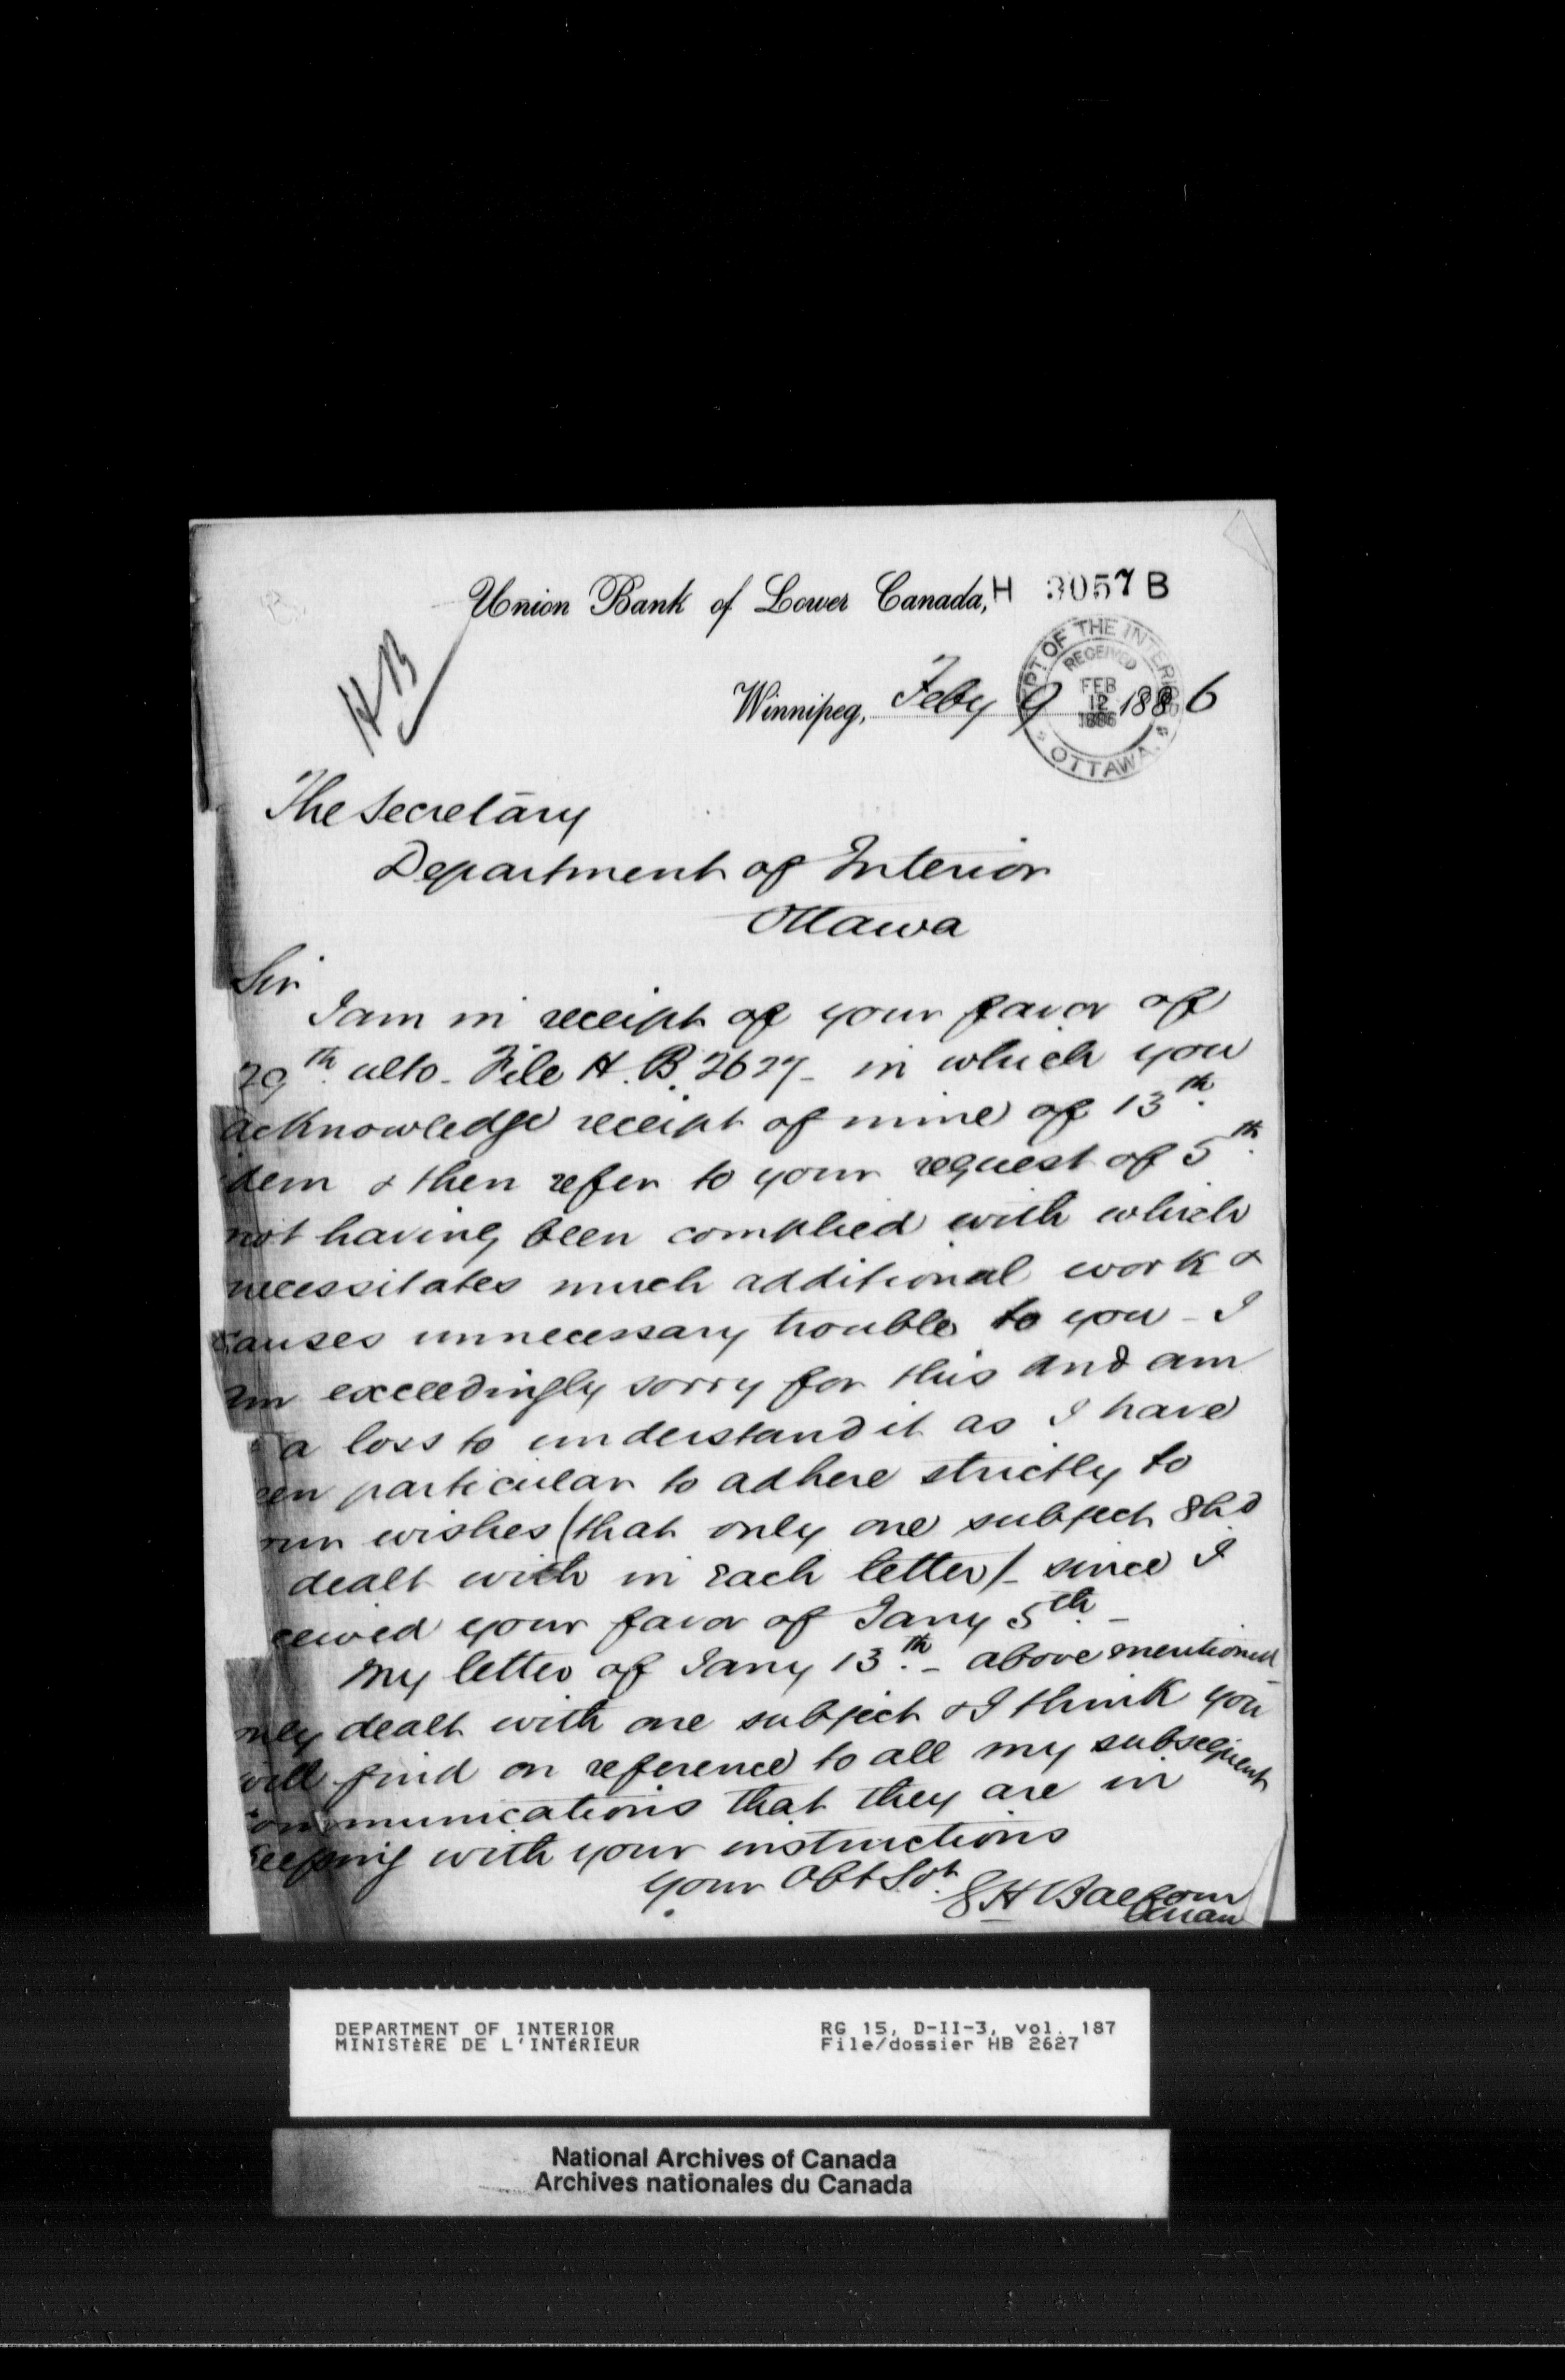 Union Bank of Lower Canada, H 3057 B
HB
DEPT OF THE INTERIOR
RECEIVED
FEB
12
1886
OTTAWA
Winnipeg, Feby 9 1886
The Secretary
Department of Interior
Ottawa
Sir
I am in receipt of your favor of
29th ulto - File H. B. 2627 - in which you
acknowledge receipt of mine of 13th
dem & then refer to your request of 5th
not having been complied with which
necessitates much additional work &
causes unnecessary trouble to you - I
am exceedingly sorry for this and am
a loss to understand it as I have
een particular to adhere strictly to
our wishes (that only one subject shd
dealt with in each letter) - since I
ceived your favor of Jany 5th -
My letter of Jany 13th - above mentioned
only dealt with one subject & I think you
will find on reference to all my subsequent
communications that they are in
keeping with your instructions
Your Obt Svt
DEPARTMENT OF INTERIOR
MINISTÈRE DE L'INTÉRIEUR
RG 15, D-II-3, vol. 187
File/dossier HB 2627
National Archives of Canada
Archives nationales du Canada